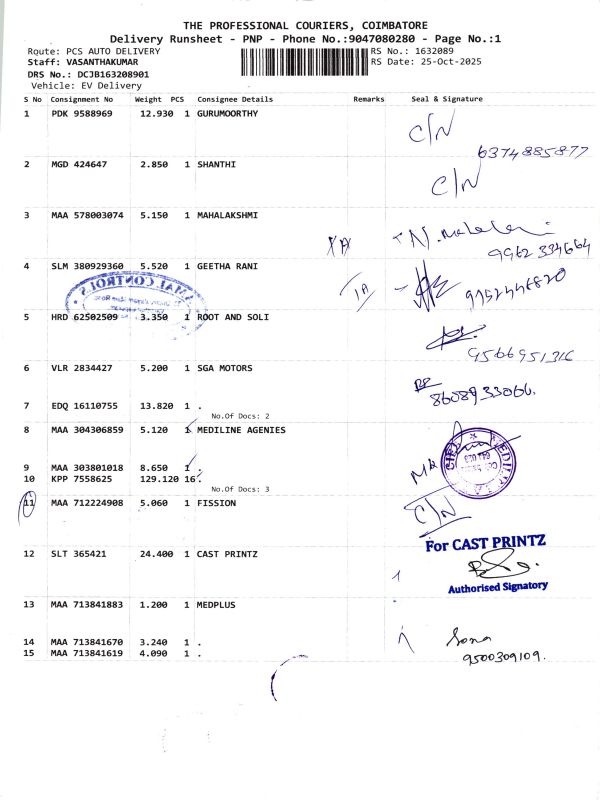 THE PROFESSIONAL COURIERS, COIMBATORE
Delivery Runsheet - PNP - Phone No.:9047080280 - Page No.:1
Route: PCS AUTO DELIVERY RS No.: 1632089
Staff: VASANTHAKUMAR RS Date: 25-Oct-2025
DRS No.: DCJB163208901
Vehicle: EV Delivery
S No Consignment No Weight PCS Consignee Details Remarks Seal & Signature
1 PDK 9588969 12.930 1 GURUMOORTHY C/N
6374885877
2 MGD 424647 2.850 1 SHANTHI C/N
3 MAA 578003074 5.150 1 MAHALAKSHMI
9962 334664
4 SLM 380929360 5.520 1 GEETHA RANI
9952446820
5 HRD 62502509 3.350 1 ROOT AND SOLI
9566951316
6 VLR 2834427 5.200 1 SGA MOTORS
8608933066.
7 EDQ 16110755 13.820 1 .
No.Of Docs: 2
8 MAA 304306859 5.120 1 MEDILINE AGENIES
9 MAA 303801018 8.650 1 .
10 KPP 7558625 129.120 16 .
No.Of Docs: 3
11 MAA 712224908 5.060 1 FISSION C/N
For CAST PRINTZ
12 SLT 365421 24.400 1 CAST PRINTZ
Authorised Signatory
13 MAA 713841883 1.200 1 MEDPLUS
14 MAA 713841670 3.240 1 . Sona
15 MAA 713841619 4.090 1 . 9500309109.